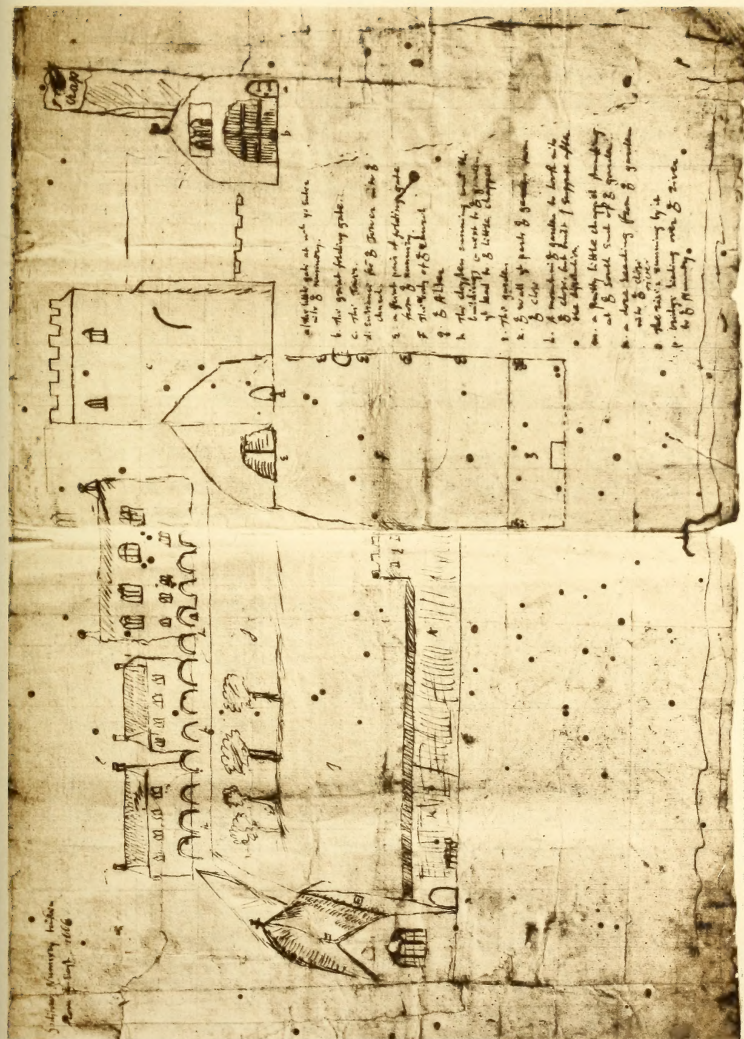 Godstow Nunnery taken
from 1666
a the little gate at
into ye nunnery.
b. The great folding gate.
c. The Tower.
d. Entrance for ye Tower into ye
church.
e. a great pair of folding gate
from ye nunnery
f. The body of ye church
g. ye Altar
h. The cloysters running and the
buildings next to ye garden
yt lead to ye little chappel
i. The garden
k. ye wall yt parts ye garden from
ye close
l. A mount in ye garden to look into
ye close, but built I suppose after
the
m. a pretty little chappel standing
at ye South end of ye garden
n. a dore leading from ye garden
into ye close
o The river running by it
p. bridge leading over ye River
to ye Nunnery.